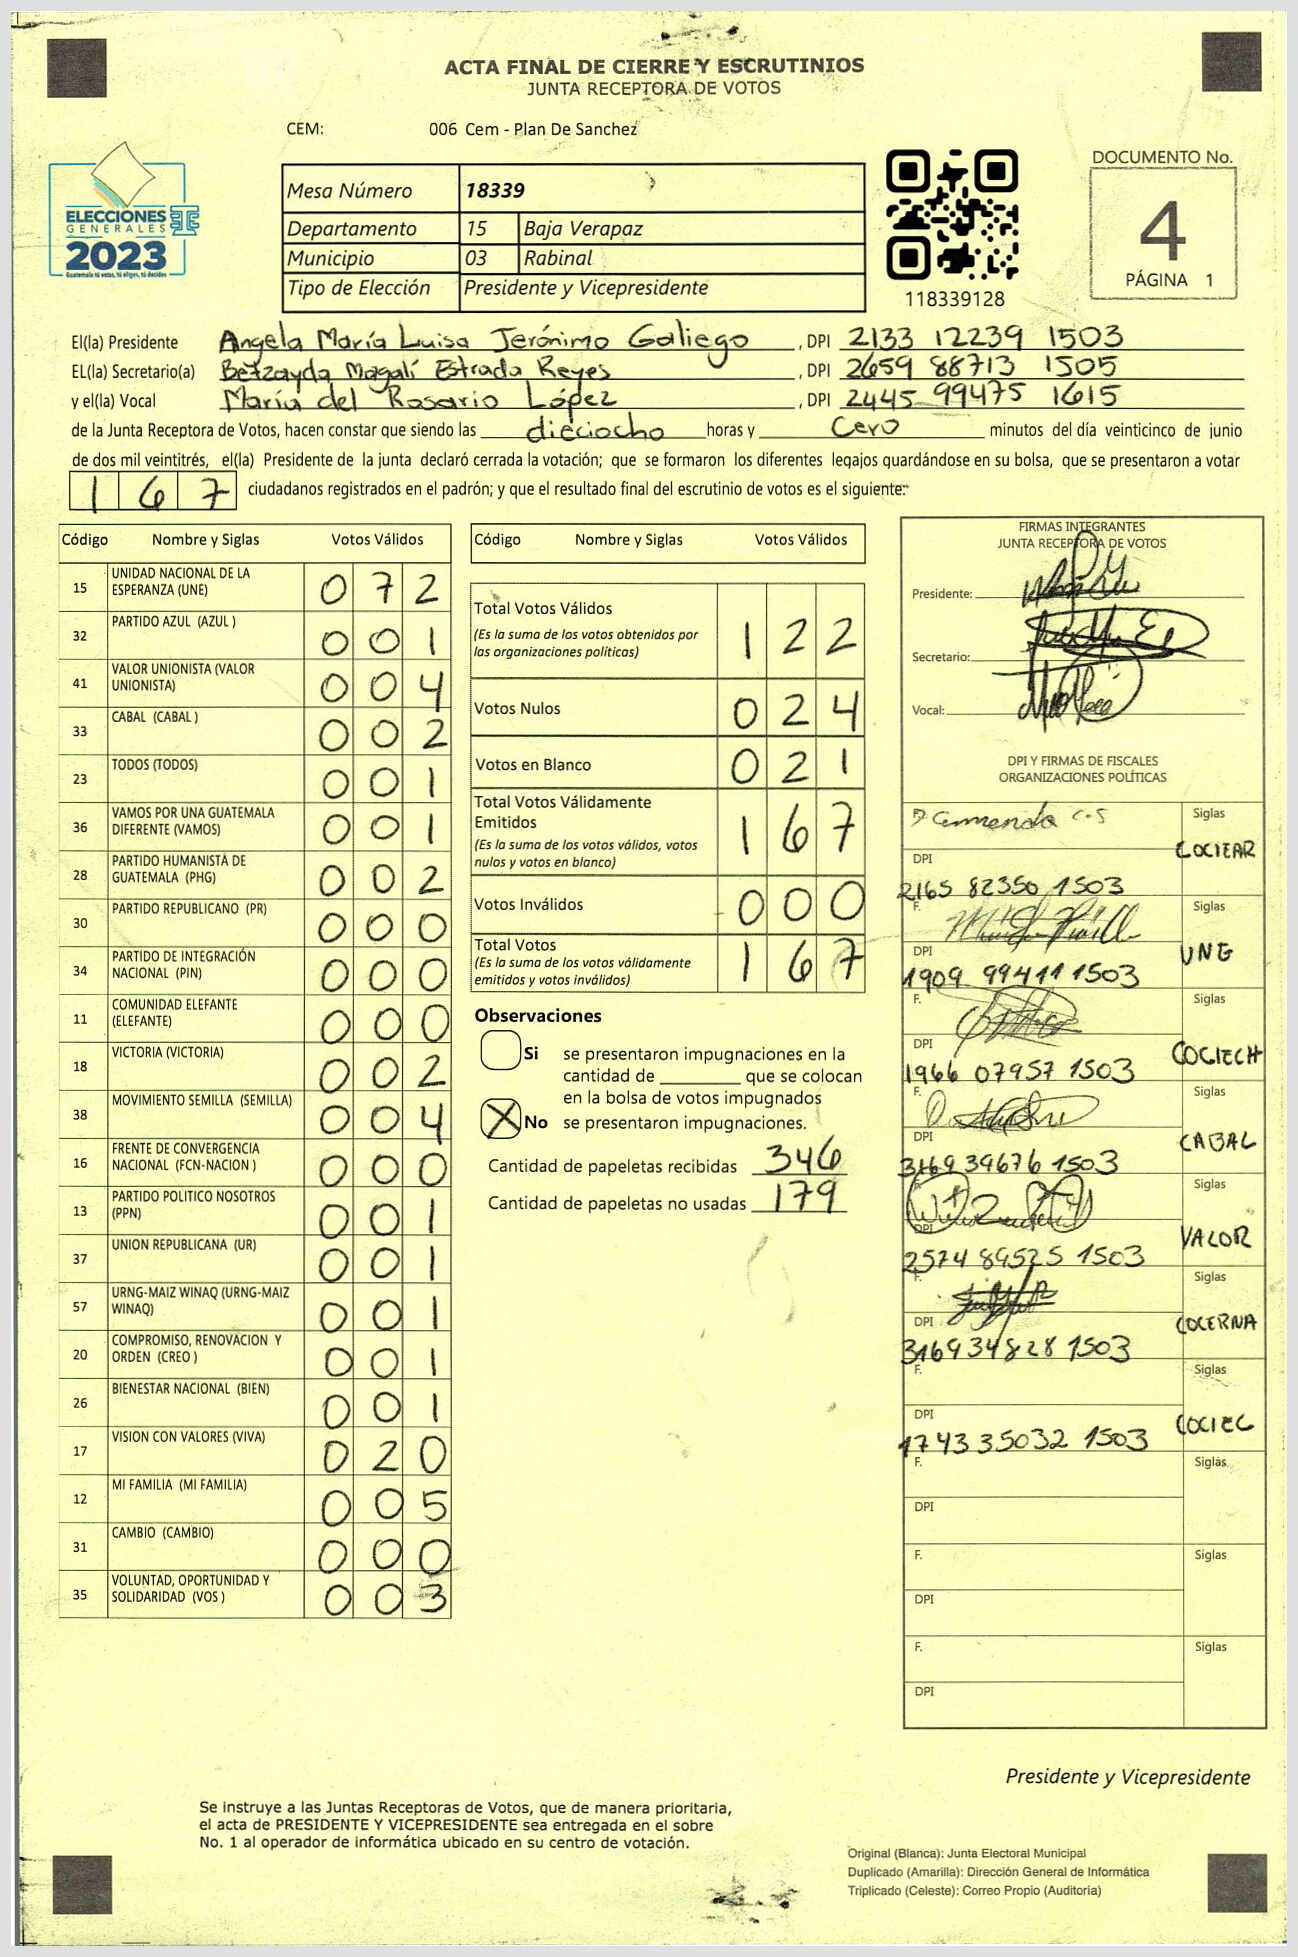 ACTA FINAL DE CIERRE Y ESCRUTINIOS
JUNTA RECEPTORA DE VOTOS
CEM: 006 Cem - Plan De Sanchez
ELECCIONES
GENERALES
2023
Guatemala tú votas, tú eliges, tú decides
Mesa Número 18339
Departamento 15 Baja Verapaz
Municipio 03 Rabinal
Tipo de Elección Presidente y Vicepresidente
118339128
DOCUMENTO No.
4
PÁGINA 1
El(la) Presidente Angela María Luisa Jerónimo Galiego , DPI 2133 12239 1503
EL(la) Secretario(a) Betzayda Magalí Estrada Reyes , DPI 2659 88713 1505
y el(la) Vocal María del Rosario López , DPI 2445 99475 1615
de la Junta Receptora de Votos, hacen constar que siendo las dieciocho horas y Cero minutos del día veinticinco de junio
de dos mil veintitrés, el(la) Presidente de la junta declaró cerrada la votación; que se formaron los diferentes legajos guardándose en su bolsa, que se presentaron a votar
167 ciudadanos registrados en el padrón; y que el resultado final del escrutinio de votos es el siguiente:
Código Nombre y Siglas Votos Válidos
15 UNIDAD NACIONAL DE LA ESPERANZA (UNE) 072
32 PARTIDO AZUL (AZUL ) 001
41 VALOR UNIONISTA (VALOR UNIONISTA) 004
33 CABAL (CABAL ) 002
23 TODOS (TODOS) 001
36 VAMOS POR UNA GUATEMALA DIFERENTE (VAMOS) 001
28 PARTIDO HUMANISTA DE GUATEMALA (PHG) 002
30 PARTIDO REPUBLICANO (PR) 000
34 PARTIDO DE INTEGRACIÓN NACIONAL (PIN) 000
11 COMUNIDAD ELEFANTE (ELEFANTE) 000
18 VICTORIA (VICTORIA) 002
38 MOVIMIENTO SEMILLA (SEMILLA) 004
16 FRENTE DE CONVERGENCIA NACIONAL (FCN-NACION ) 000
13 PARTIDO POLITICO NOSOTROS (PPN) 001
37 UNION REPUBLICANA (UR) 001
57 URNG-MAIZ WINAQ (URNG-MAIZ WINAQ) 001
20 COMPROMISO, RENOVACION Y ORDEN (CREO ) 001
26 BIENESTAR NACIONAL (BIEN) 001
17 VISION CON VALORES (VIVA) 020
12 MI FAMILIA (MI FAMILIA) 005
31 CAMBIO (CAMBIO) 000
35 VOLUNTAD, OPORTUNIDAD Y SOLIDARIDAD (VOS ) 003
Código Nombre y Siglas Votos Válidos
Total Votos Válidos 122
(Es la suma de los votos obtenidos por
las organizaciones políticas)
Votos Nulos 024
Votos en Blanco 021
Total Votos Válidamente
Emitidos 167
(Es la suma de los votos válidos, votos
nulos y votos en blanco)
Votos Inválidos 000
Total Votos 167
(Es la suma de los votos válidamente
emitidos y votos inválidos)
Observaciones
Si se presentaron impugnaciones en la
cantidad de ________ que se colocan
en la bolsa de votos impugnados
X No se presentaron impugnaciones.
Cantidad de papeletas recibidas 346
Cantidad de papeletas no usadas 179
FIRMAS INTEGRANTES
JUNTA RECEPTORA DE VOTOS
Presidente:
Secretario:
Vocal:
DPI Y FIRMAS DE FISCALES
ORGANIZACIONES POLÍTICAS
Siglas COCIEAR
DPI
2165 82350 1503
F. Siglas UNE
DPI
1909 99411 1503
F. Siglas COCIECH
DPI
1966 07957 1503
F. Siglas CABAL
DPI
3169 39676 1503
Siglas VALOR
DPI
2574 89525 1503
F. Siglas COCERNA
DPI
3169 34828 1503
F. Siglas COCIEC
DPI
1743 35032 1503
F. Siglas
DPI
F. Siglas
DPI
F. Siglas
DPI
Presidente y Vicepresidente
Se instruye a las Juntas Receptoras de Votos, que de manera prioritaria,
el acta de PRESIDENTE Y VICEPRESIDENTE sea entregada en el sobre
No. 1 al operador de informática ubicado en su centro de votación.
Original (Blanca): Junta Electoral Municipal
Duplicado (Amarilla): Dirección General de Informática
Triplicado (Celeste): Correo Propio (Auditoria)